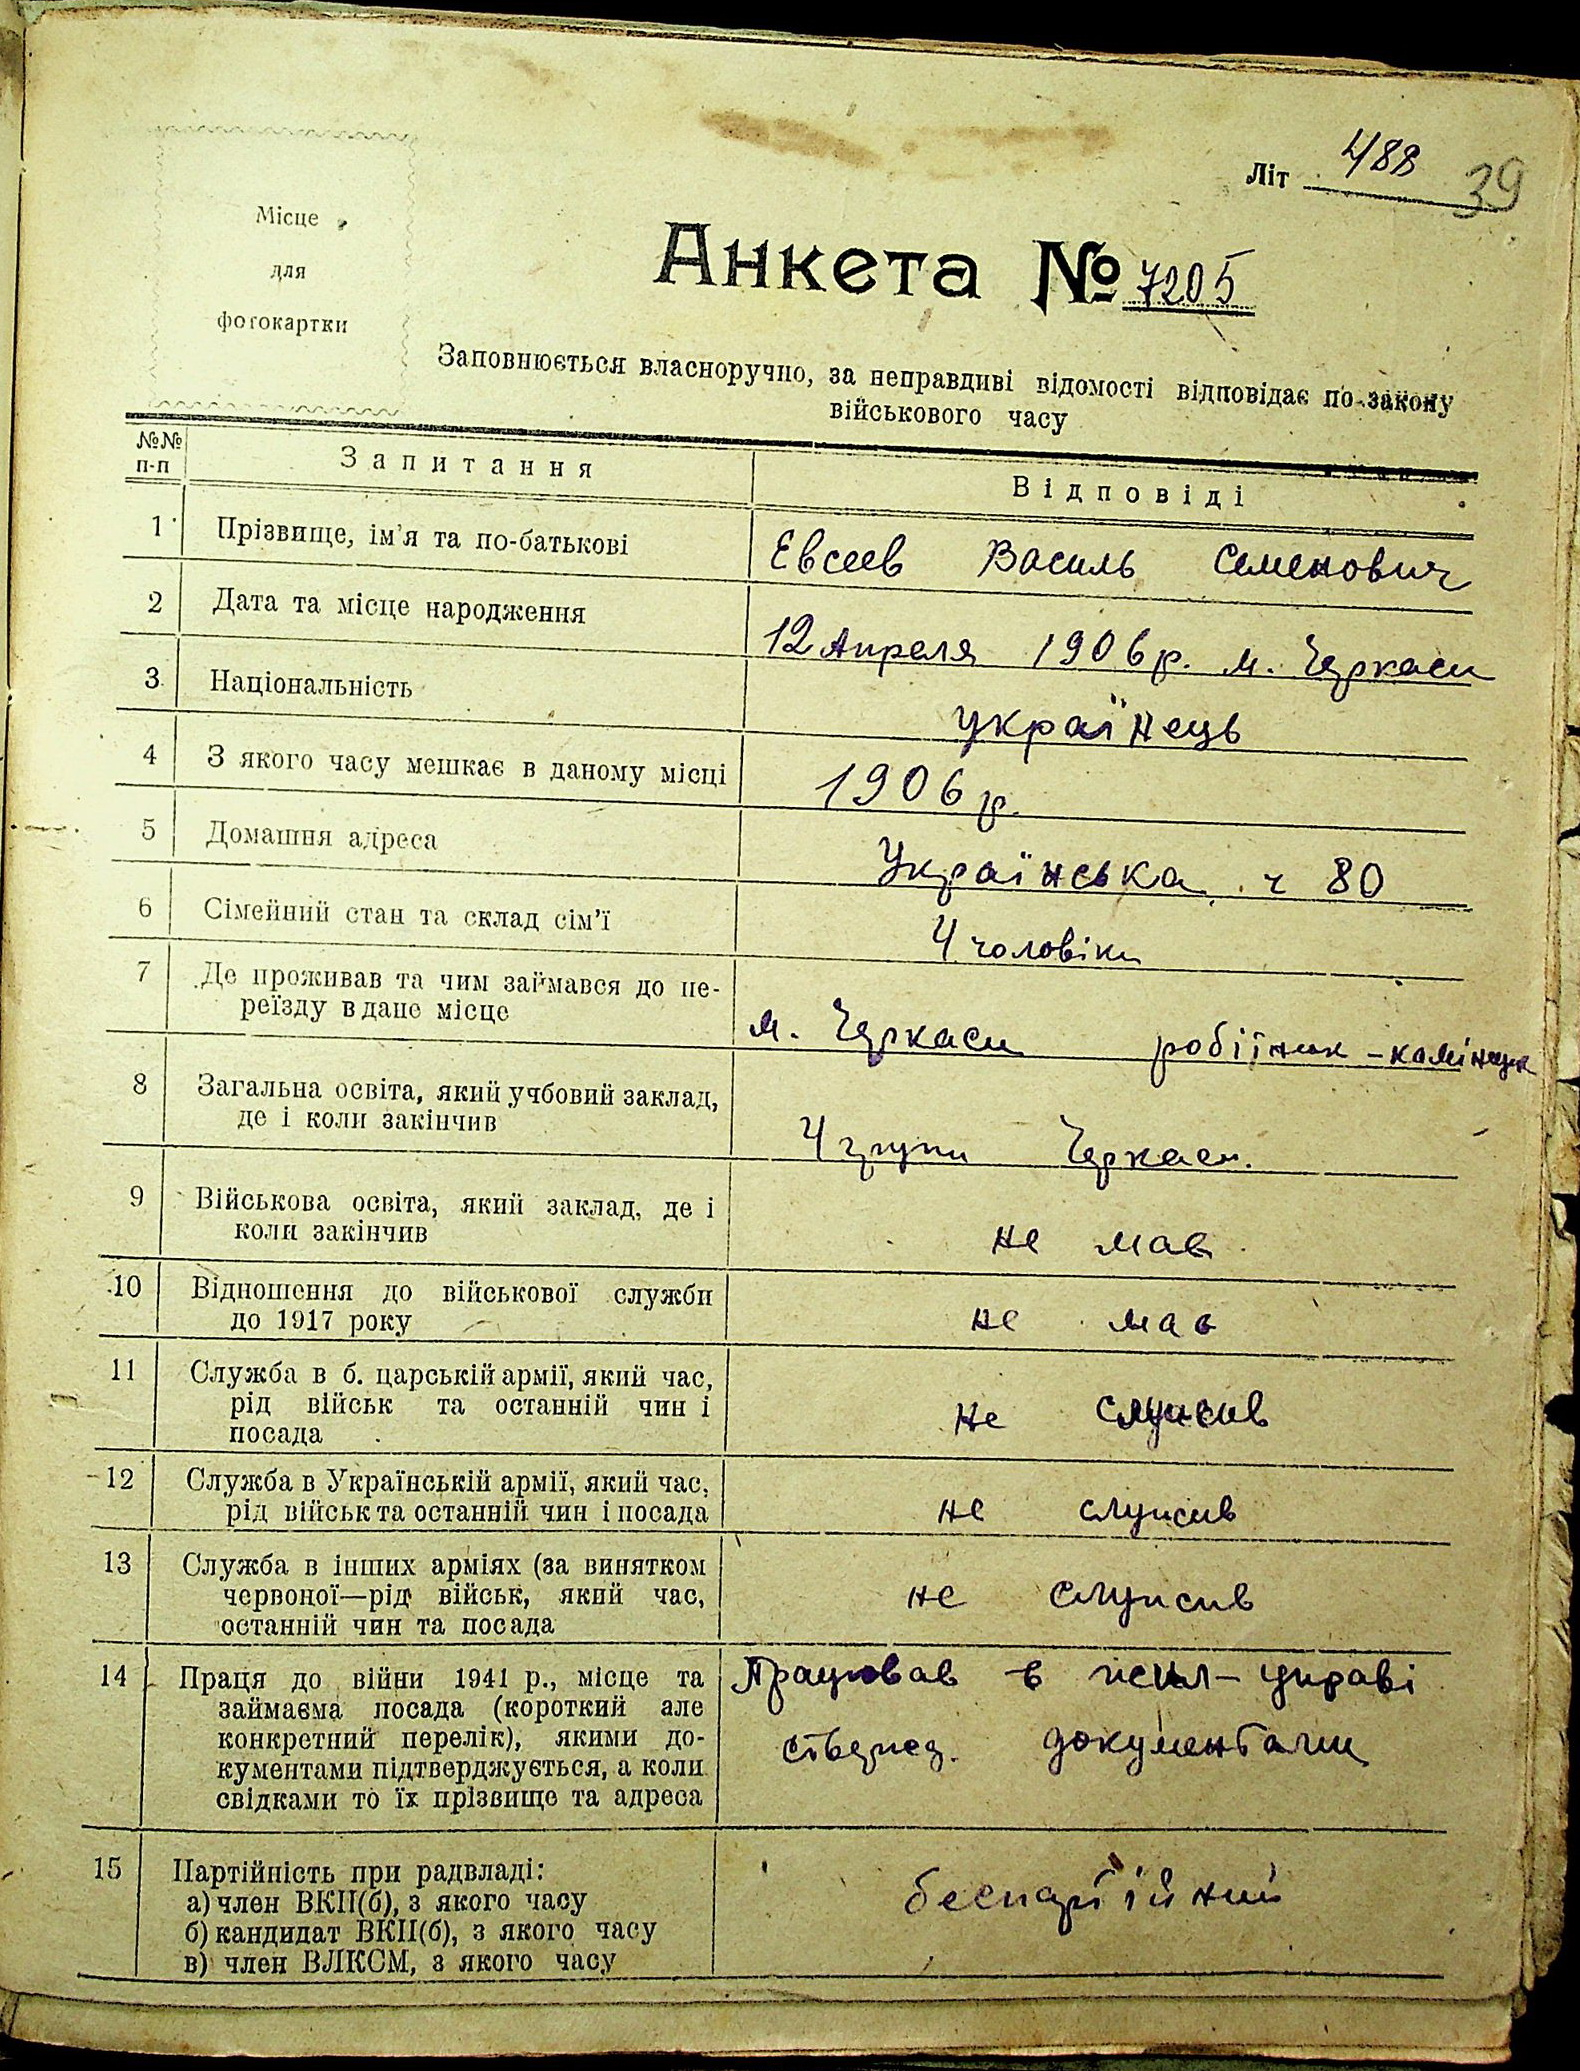 Літ 488 39
Місце
для
фотокартки
Анкета № 7205
Заповнюється власноручно, за неправдиві відомості відповідає по закону
військового часу
№№ п-п Запитання Відповіді
1 Прізвище, ім'я та по-батькові Евсеев Василь Семенович
2 Дата та місце народження 12 Апреля 1906 р. м. Черкаси
3 Національність українець
4 З якого часу мешкає в даному місці 1906 р.
5 Домашня адреса Українська ч 80
6 Сімейний стан та склад сім'ї 4 чоловіки
7 Де проживав та чим займався до пе-
реїзду в дане місце м. Черкаси робітник - камінщик
8 Загальна освіта, який учбовий заклад,
де і коли закінчив 4 групи Черкаси.
9 Військова освіта, який заклад, де і
коли закінчив не мав
10 Відношення до військової служби
до 1917 року не мав
11 Служба в б. царській армії, який час,
рід військ та останній чин і
посада не служив
12 Служба в Українській армії, який час,
рід військ та останній чин і посада не служив
13 Служба в інших арміях (за винятком
червоної—рід військ, який час,
останній чин та посада не служив
14 Праця до війни 1941 р., місце та Працював в управі
займаєма посада (короткий але
конкретний перелік), якими до- стверж. документами
кументами підтверджується, а коли
свідками то їх прізвище та адреса
15 Партійність при радвладі:
а) член ВКП(б), з якого часу беспартійний
б) кандидат ВКП(б), з якого часу
в) член ВЛКСМ, з якого часу